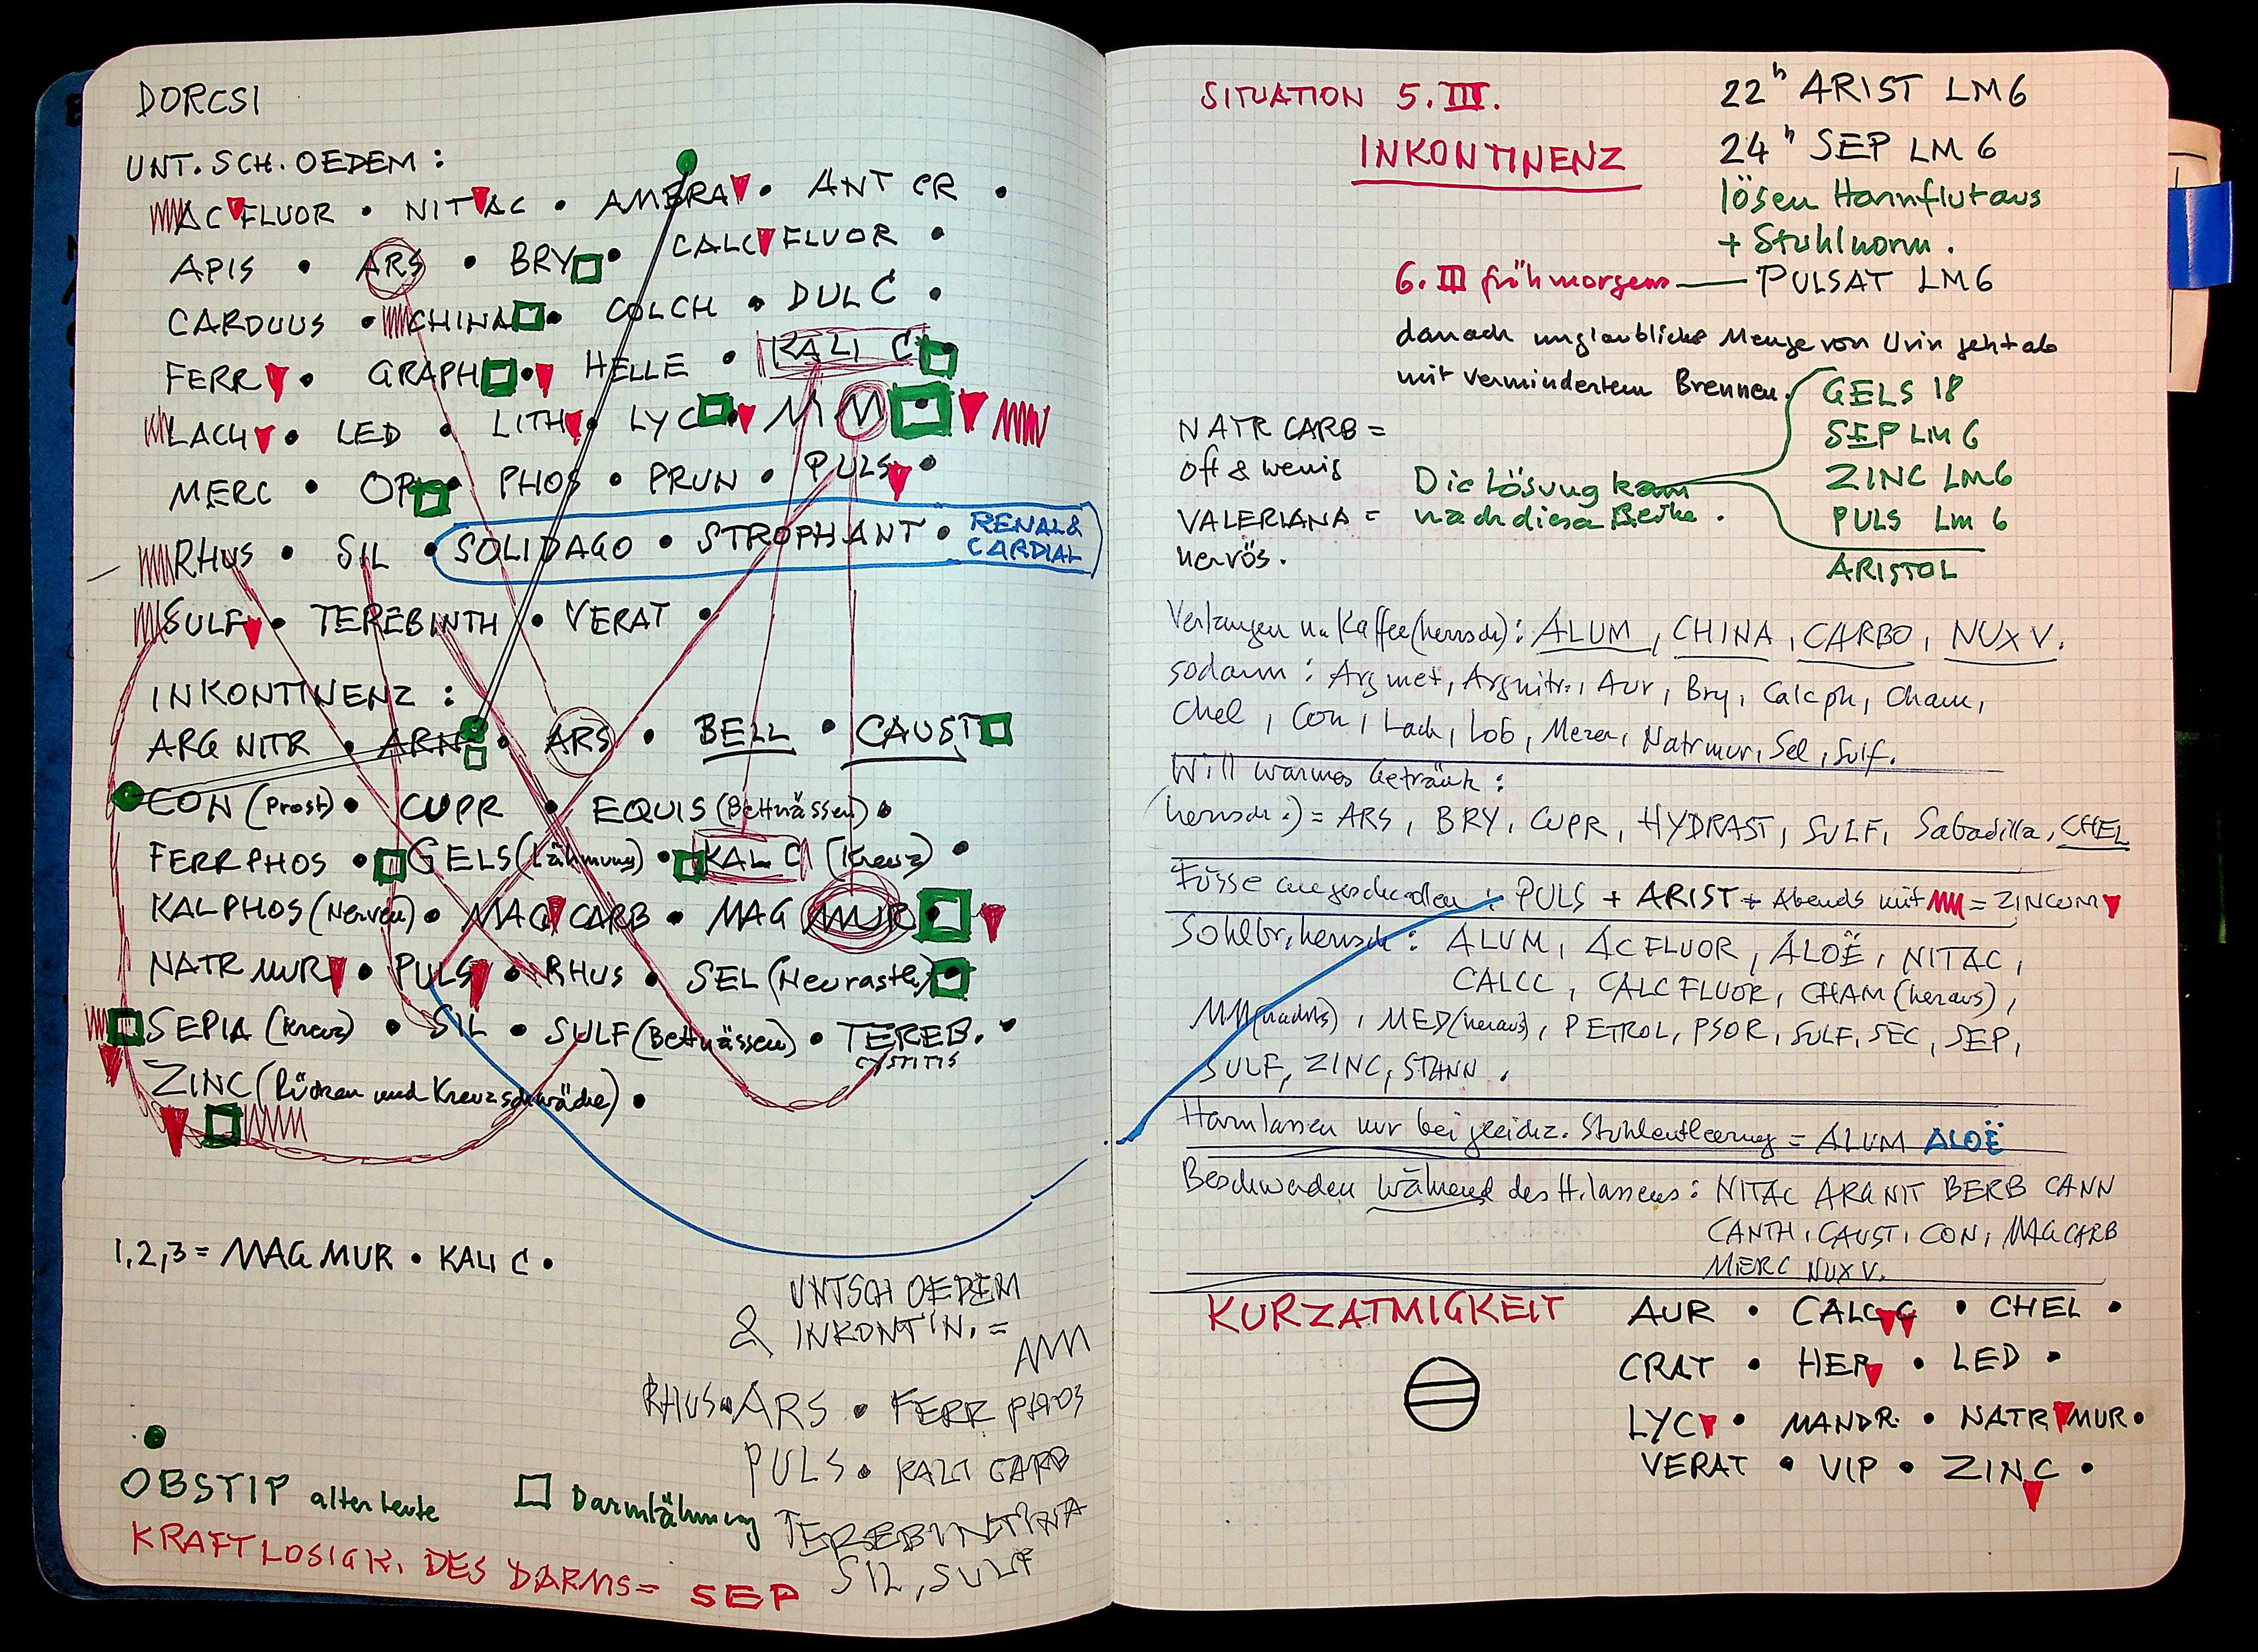 DORCSI
UNT. SCH. OEDEM :
AC FLUOR • NIT AC • AMBRA • ANT CR •
APIS • ARS • BRY • CALC FLUOR •
CARDUUS • CHINA • COLCH • DULC •
FERR • GRAPH • HELLE • KALI C
LACH • LED • LITH • LYC • M M
MERC • OP • PHOS • PRUN • PULS •
RHUS • SIL • SOLIDAGO • STROPHANT • RENAL &
CARDIAL
SULF • TEREBINTH • VERAT •
INKONTINENZ :
ARG NITR • ARN • ARS • BELL • CAUST
CON (Prost) • CUPR • EQUIS (Bettnässen) •
FERR PHOS • GELS (Lähmung) • KAL C (Kreuz) •
KALPHOS (Nerven) • MAG CARB • MAG MUR
NATR MUR • PULS • RHUS • SEL (Neurasth)
SEPIA (Kreuz) • SIL • SULF (Bettnässen) • TEREB. •
CYSTITIS
ZINC (Rücken und Kreuzschwäche) •
1, 2, 3 = MAG MUR • KALI C •
UNTSCH OEDEM
& INKONTIN. =
RHUS • ARS • FERR PHOS
PULS • KALI CARB
TEREBINTINA
SIL, SULF
OBSTIP alter Leute
Darmlähmung
KRAFTLOSIGK. DES DARMS = SEP
SITUATION 5. III.
INKONTINENZ
22h ARIST LM6
24h SEP LM 6
lösen Harnflut aus
+ Stuhlnorm.
6. III frühmorgens — PULSAT LM6
danach unglaubliche Menge von Urin geht ab
mit vermindertem Brennen.
GELS 18
SEP LM 6
ZINC LM6
PULS LM 6
ARISTOL
NATR CARB =
oft & wenig
VALERIANA =
nervös.
Die Lösung kam
nach dieser Reihe.
Verlangen n. Kaffee (herrsch): ALUM, CHINA, CARBO, NUX V.
sodann : Arg met, Arg nitr., Aur, Bry, Calc ph, Cham,
Chel, Con, Lach, Lob, Mezer, Natr mur, Sel, Sulf.
Will warmes Getränk :
(herrsch:) = ARS, BRY, CUPR, HYDRAST, SULF, Sabadilla, CHEL
Füsse angeschwollen : PULS + ARIST + Abends mit = ZINCUM
Sohlbr. herrsch : ALUM, AC FLUOR, ALOË, NIT AC,
CALC C, CALC FLUOR, CHAM (heraus),
MM (nachts), MED (heraus), PETROL, PSOR, SULF, SEC, SEP,
SULF, ZINC, STANN.
Harnlassen nur bei gleichz. Stuhlentleerung = ALUM ALOË
Beschwerden während des H. lassens : NIT AC ARG NIT BERB CANN
CANTH, CAUST, CON, MAG CARB
MERC NUX V.
KURZATMIGKEIT
AUR • CALC C • CHEL •
CRAT • HEP • LED •
LYC • MANDR. • NATR MUR •
VERAT • VIP • ZINC •